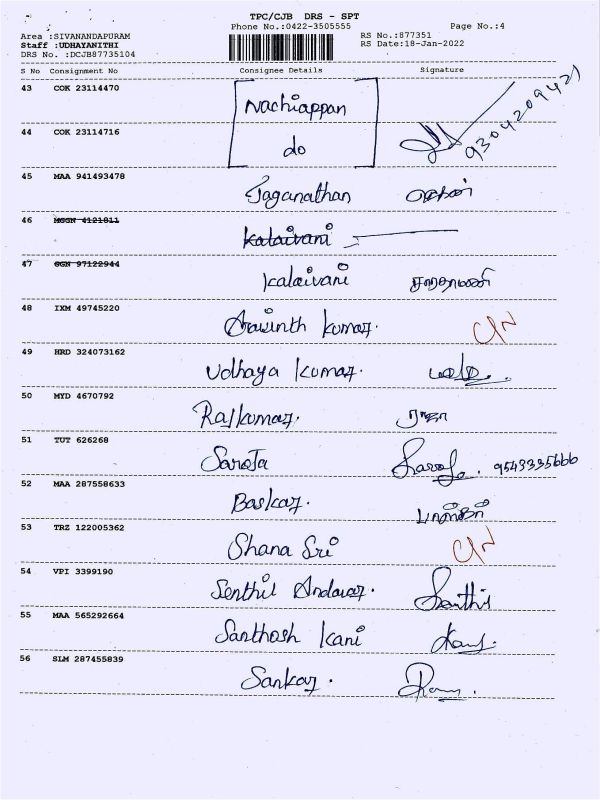 TPC/CJB DRS - SPT
Phone No.:0422-3505555 Page No.:4
Area :SIVANANDAPURAM RS No.:877351
Staff :UDHAYANITHI RS Date:18-Jan-2022
DRS No. :DCJB87735104
S No Consignment No Consignee Details Signature
43 COK 23114470 Nachiappan
44 COK 23114716 do 9304209421
45 MAA 941493478 Jaganathan
46 MGGN 4121811 Kalaivani
47 GGN 97122944 Kalaivani சாரதாமணி
48 IXM 49745220 Aravinth Kumar.
49 HRD 324073162 Udhaya Kumar.
50 MYD 4670792 Rajkumar. ராஜா
51 TUT 626268 Saroja Saroja. 9543335666
52 MAA 287558633 Baskar. பாஸ்கர்
53 TRZ 122005362 Shana Sri
54 VPI 3399190 Senthil Andavar. Santhil
55 MAA 565292664 Santhosh Kani
56 SLM 287455839 Sankar.